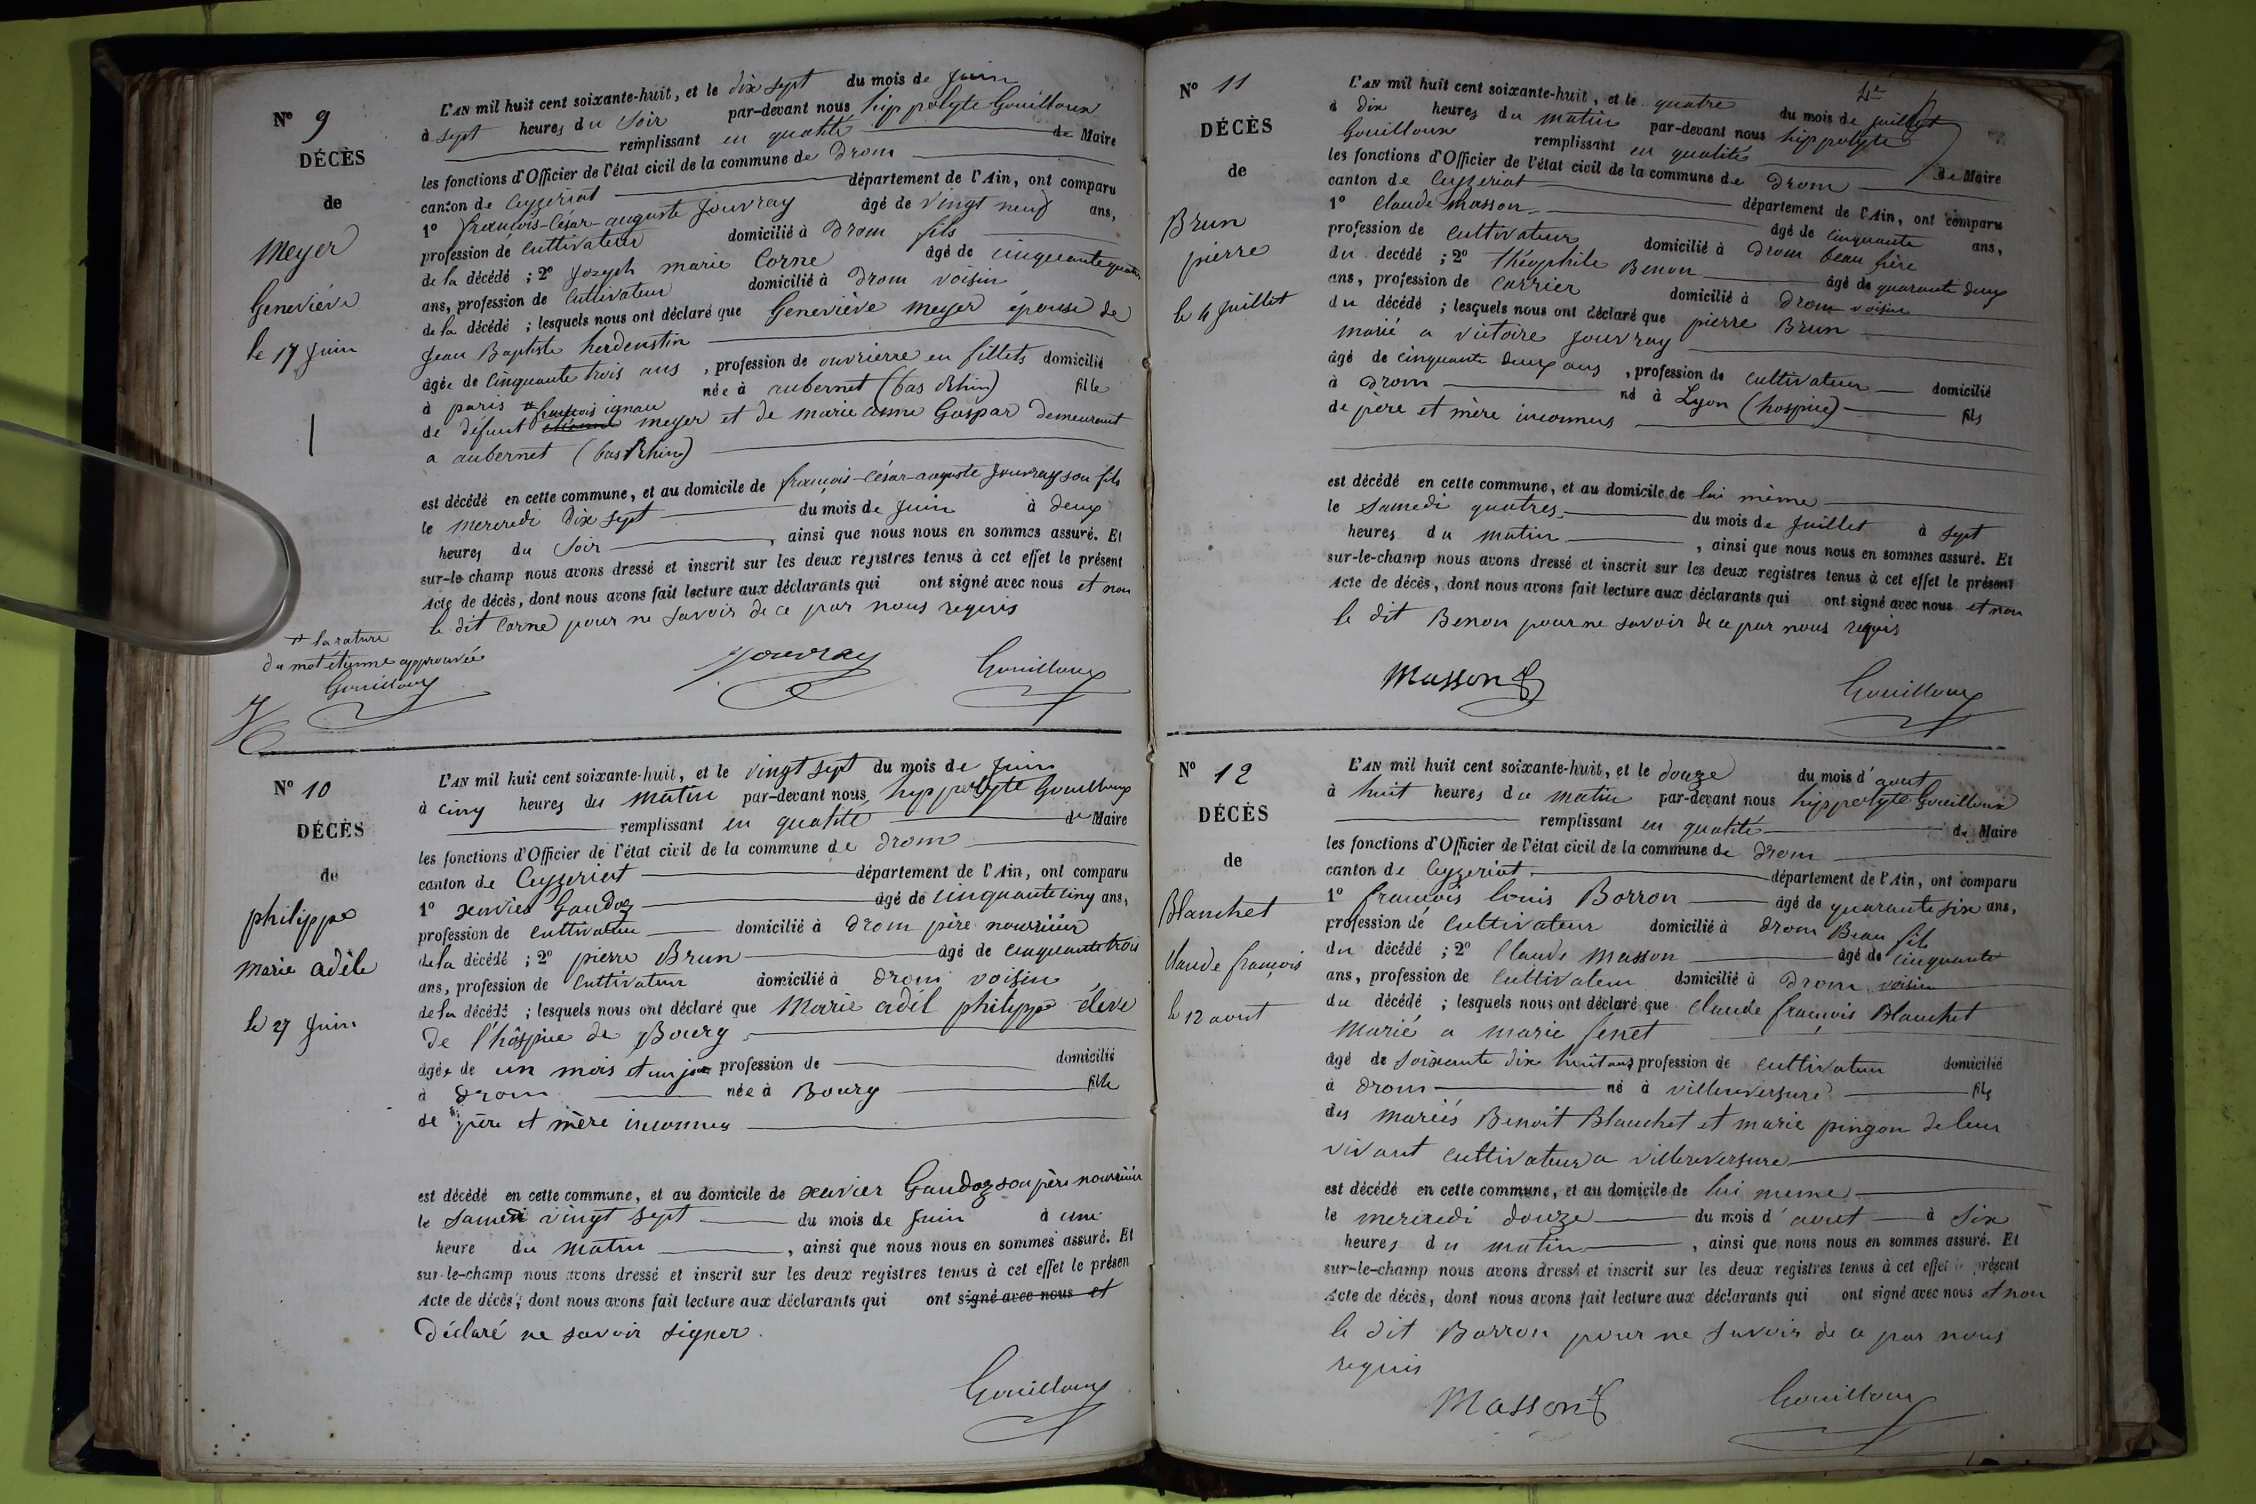 N° 9
DÉCÈS
de
Meyer
Geneviève
le 17 Juin
L'AN mil huit cent soixante-huit, et le dix sept du mois de Juin
à sept heures du soir par-devant nous hippolyte Gouilloux
remplissant en qualité de Maire
les fonctions d'Officier de l'état civil de la commune de Drom
canton de Ceyzeriat département de l'Ain, ont comparu
1° françois-César-auguste Jouvray âgé de vingt neuf ans,
profession de cultivateur domicilié à Drom fils
de la décédé ; 2° Joseph marie Corne âgé de cinquante quatre
ans, profession de Cultivateur domicilié à Drom voisin
de la décédé ; lesquels nous ont déclaré que Geneviève Meyer épouse de
Jean Baptiste herdenstin
âgée de Cinquante trois ans , profession de ouvrierre en fillets domicilié
à paris née à aubernet (bas Rhin) fille
# françois ignace
de défunt etienne meyer et de marie anne Gaspar demeurant
a aubernet (bas Rhin)
est décédé en cette commune, et au domicile de françois-César-auguste Jouvray son fils
le mercredi dix sept du mois de Juin à deux
heures du soir , ainsi que nous nous en sommes assuré. Et
sur-le-champ nous avons dressé et inscrit sur les deux registres tenus à cet effet le présent
Acte de décès, dont nous avons fait lecture aux déclarants qui ont signé avec nous et non
le dit Corne pour ne savoir de ce par nous requis
# la rature
du mot étienne approuvée
Gouilloux
Jouvray Gouilloux
N° 10
DÉCÈS
de
philippe
marie adèle
le 27 Juin
L'AN mil huit cent soixante-huit, et le vingt sept du mois de Juin
à cinq heures du matin par-devant nous hyppolyte Gouilloux
remplissant en qualité de Maire
les fonctions d'Officier de l'état civil de la commune de Drom
canton de Ceyzeriat département de l'Ain, ont comparu
1° xavier Gaudoz âgé de cinquante cinq ans,
profession de cultivateur domicilié à Drom père nourricier
de la décédé ; 2° pierre Brun âgé de cinquante trois
ans, profession de Cultivateur domicilié à Drom voisin
de la décédé ; lesquels nous ont déclaré que Marie adél philippe élève
De l'hôspice de Bourg
âgée de un mois et un jour profession de domicilié
à Drom née à Bourg fille
de père et mère inconnus
est décédé en cette commune, et au domicile de xavier Gaudoz son père nourricier
le Samedi vingt sept du mois de Juin à une
heure du matin , ainsi que nous nous en sommes assuré. Et
sur-le-champ nous avons dressé et inscrit sur les deux registres tenus à cet effet le présen
Acte de décès, dont nous avons fait lecture aux déclarants qui ont signé avec nous et
Déclaré ne savoir signer.
Gouilloux
N° 11
DÉCÈS
de
Brun
pierre
le 4 Juillet
L'AN mil huit cent soixante-huit, et le quatre du mois de Juillet
à dix heures du matin par-devant nous hippolyte
Gouilloux remplissant en qualités de Maire
les fonctions d'Officier de l'état civil de la commune de Drom
canton de Ceyzeriat département de l'Ain, ont comparu
1° Claude Masson âgé de cinquante ans,
profession de cultivateur domicilié à Drom beau frère
du décédé ; 2° théophile Benon âgé de quarante deux
ans, profession de carrier domicilié à Drom voisin
du décédé ; lesquels nous ont déclaré que pierre Brun
marié a victoire Jouvray
âgé de cinquante deux ans , profession de cultivateur domicilié
à Drom né à Lyon (hospice) fils
de père et mère inconnus
est décédé en cette commune, et au domicile de lui même
le Samedi quatres du mois de Juillet à sept
heures du matin , ainsi que nous nous en sommes assuré. Et
sur-le-champ nous avons dressé et inscrit sur les deux registres tenus à cet effet le présent
Acte de décès, dont nous avons fait lecture aux déclarants qui ont signé avec nous et non
le dit Benon pour ne savoir de ce par nous requis
Masson Gouilloux
N° 12
DÉCÈS
de
Blanchet
claude françois
le 12 aout
L'AN mil huit cent soixante-huit, et le douze du mois d'aout
à huit heures du matin par-devant nous hyppolyte Gouilloux
remplissant en qualité de Maire
les fonctions d'Officier de l'état civil de la commune de Drom
canton de Ceyzeriat département de l'Ain, ont comparu
1° françois louis Borron âgé de quarante six ans,
profession de cultivateur domicilié à Drom Beau fils
du décédé ; 2° Claude Masson âgé de cinquante
ans, profession de Cultivateur domicilié à Drom voisin
du décédé ; lesquels nous ont déclaré que Claude françois Blanchet
Marié a marie fenet
âgé de soixante dix huit ans profession de cultivateur domicilié
à Drom né à villereversure fils
des mariés Benoit Blanchet et marie pingon de leur
vivant cultivateur a villereversure
est décédé en cette commune, et au domicile de lui meme
le mercredi douze du mois d'aout à six
heures du matin , ainsi que nous nous en sommes assuré. Et
sur-le-champ nous avons dressé et inscrit sur les deux registres tenus à cet effet le présent
Acte de décès, dont nous avons fait lecture aux déclarants qui ont signé avec nous et non
le dit Borron pour ne savoir de ce par nous
requis
Masson Gouilloux